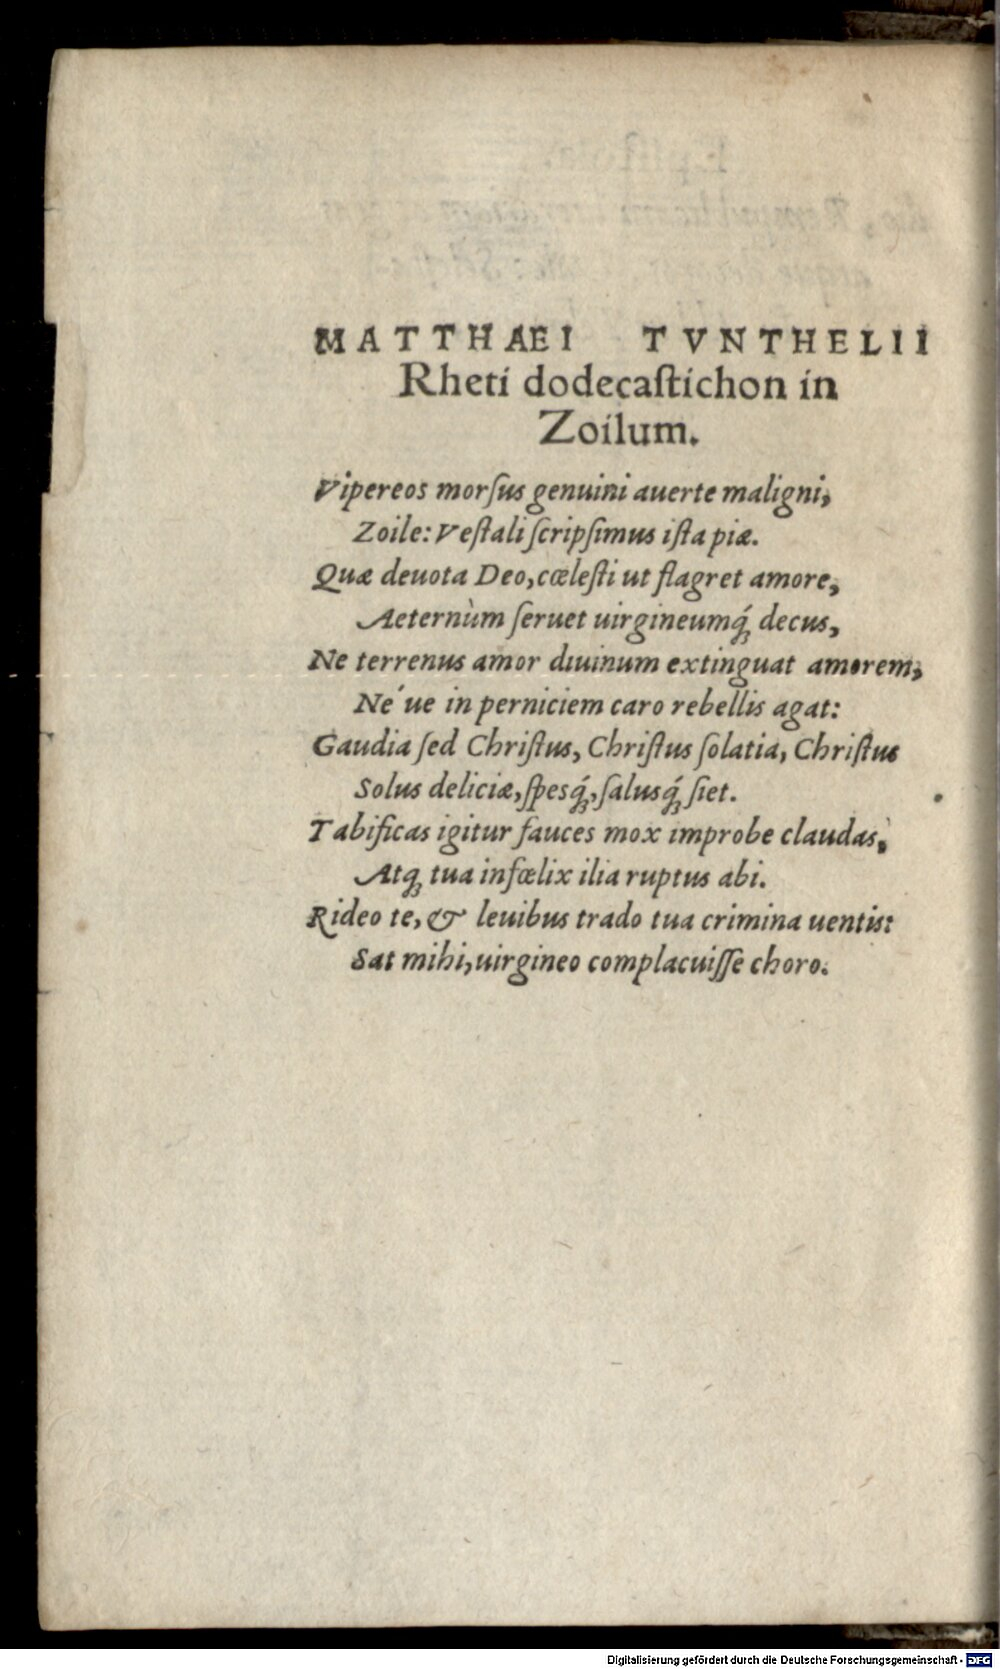 MATTHAEI TVNTHELII
Rheti dodecaſtichon in
Zoilum.
Vipereos morſus genuini auerte maligni,
Zoile: Veſtali ſcripſimus iſta piæ.
Quæ deuota Deo, cœleſti ut flagret amore,
Aeternùm ſeruet uirgineumq́ꝫ decus,
Ne terrenus amor diuinum extinguat amorem,
Né ue in perniciem caro rebellis agat:
Gaudia ſed Chriſtus, Chriſtus ſolatia, Chriſtus
Solus deliciæ, ſpesq́ꝫ, ſalusq́ꝫ ſiet.
Tabificas igitur fauces mox improbe claudas,
Atqꝫ tua infœlix ilia ruptus abi.
Rideo te, & leuibus trado tua crimina uentis:
Sat mihi, uirgineo complacuiſſe choro.
Digitalisierung gefördert durch die Deutsche Forschungsgemeinschaft - DFG